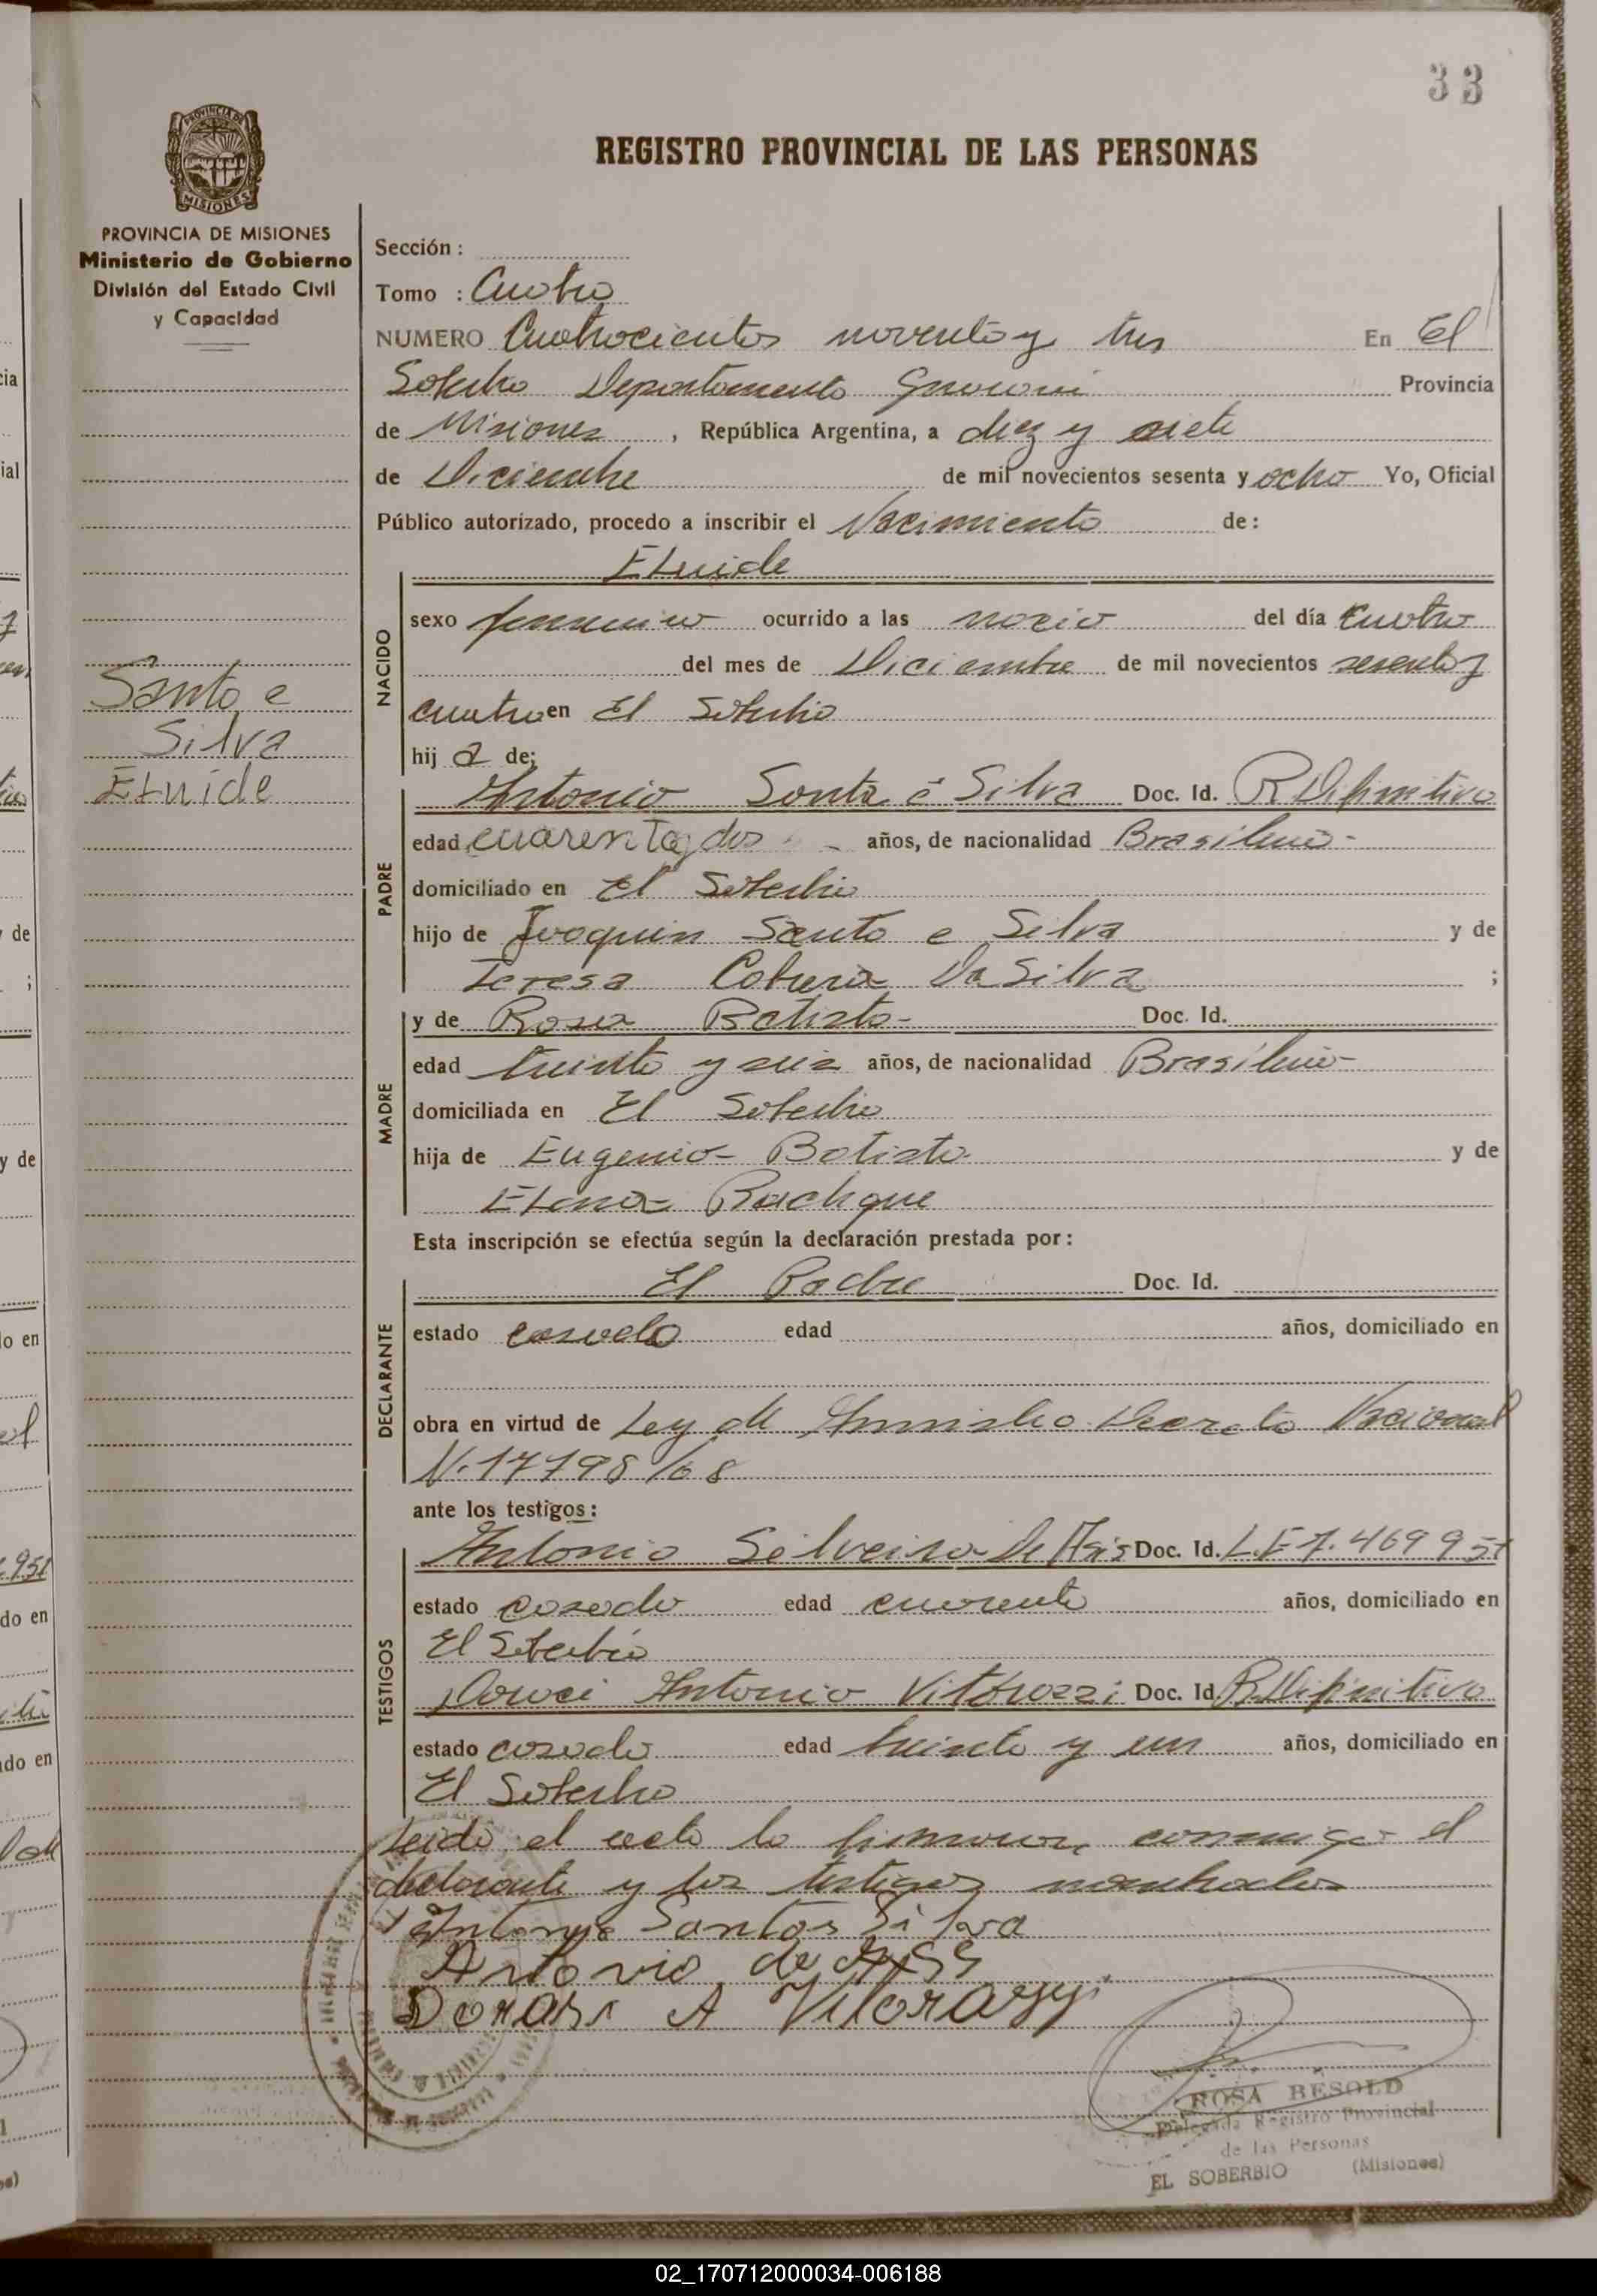 33
PROVINCIA DE MISIONES
REGISTRO PROVINCIAL DE LAS PERSONAS
PROVINCIA DE MISIONES
Ministerio de Gobierno
División del Estado Civil
y Capacidad
Santo e
Silva
Eluide
Sección :
Tomo : Cuatro
NUMERO Cuatrocientos noventa y tres En El
Soberbio Departamento Guarani Provincia
de Misiones , República Argentina, a diez y siete
de Diciembre de mil novecientos sesenta y ocho Yo, Oficial
Público autorizado, procedo a inscribir el Nacimiento de:
Eluide
NACIDO
sexo femenino ocurrido a las del día cuatro
del mes de Diciembre de mil novecientos sesenta y
cuatro en El Soberbio
hij a de:
PADRE
Antonio Santo e Silva Doc. Id. R Difinitivo
edad cuarenta y dos años, de nacionalidad Brasileno
domiciliado en El Soberbio
hijo de Joaquin Santo e Silva y de
Teresa Da Silva ;
MADRE
y de Rosa Batista Doc. Id.
edad treinta y seis años, de nacionalidad Brasileno
domiciliada en El Soberbio
hija de Eugenio Batista y de
Elena
Esta inscripción se efectúa según la declaración prestada por:
DECLARANTE
El Padre Doc. Id.
estado casado edad años, domiciliado en
obra en virtud de Ley de Amnistia Decreto Nacional
N. 17798/68
ante los testigos:
TESTIGOS
Antonio Silveira De Asis Doc. Id. L.E 7.469951
estado casado edad cuarenta años, domiciliado en
El Soberbio
Antonio Vitorazzi Doc. Id R Difinitivo
estado casado edad treinta y un años, domiciliado en
El Soberbio
Leida el acta la firmaron conmigo el
declarante y los testigos nombrados
Antonio Santos Silva
Antonio de
A Vitorazzi
ROSA BESOLD
Delegada Registro Provincial
de las Personas
EL SOBERBIO (Misiones)
02_170712000034-006188